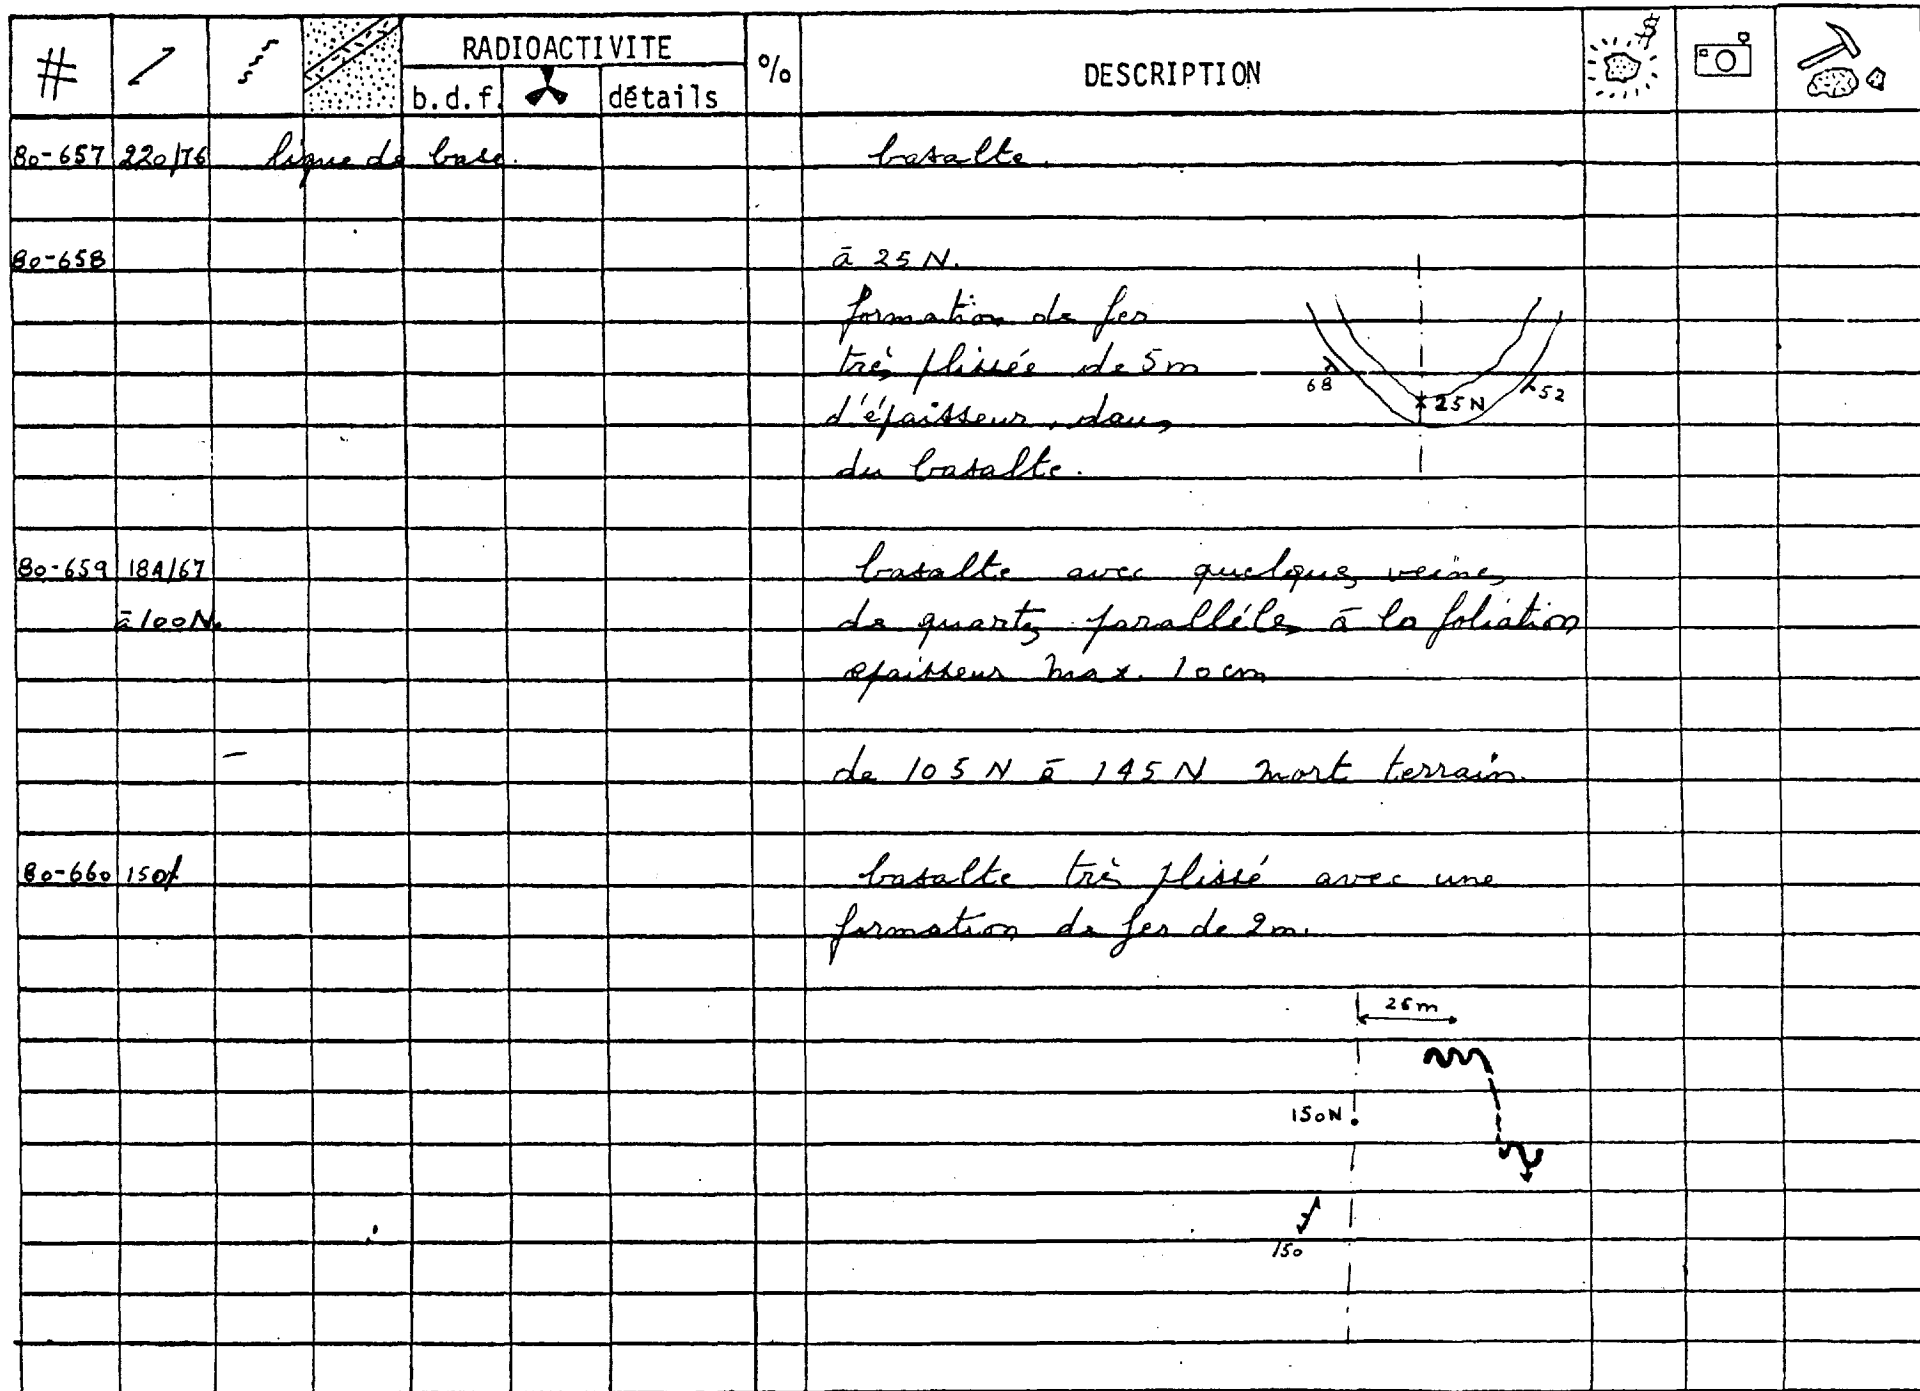 # RADIOACTIVITE % DESCRIPTION $
b.d.f. détails
80-657 220/76 ligne de base. basalte.
80-658 à 25 N.
formation de fer
très plissée de 5m
68 52
d'épaisseur, dans
25N
du basalte.
80-659 184/67 basalte avec quelques veines
à 100N. de quartz parallèles à la foliation
epaisseur max. 10 cm
de 105 N à 145 N mort terrain.
80-660 150/ basalte très plissé avec une
formation de fer de 2m.
25m
150N
150